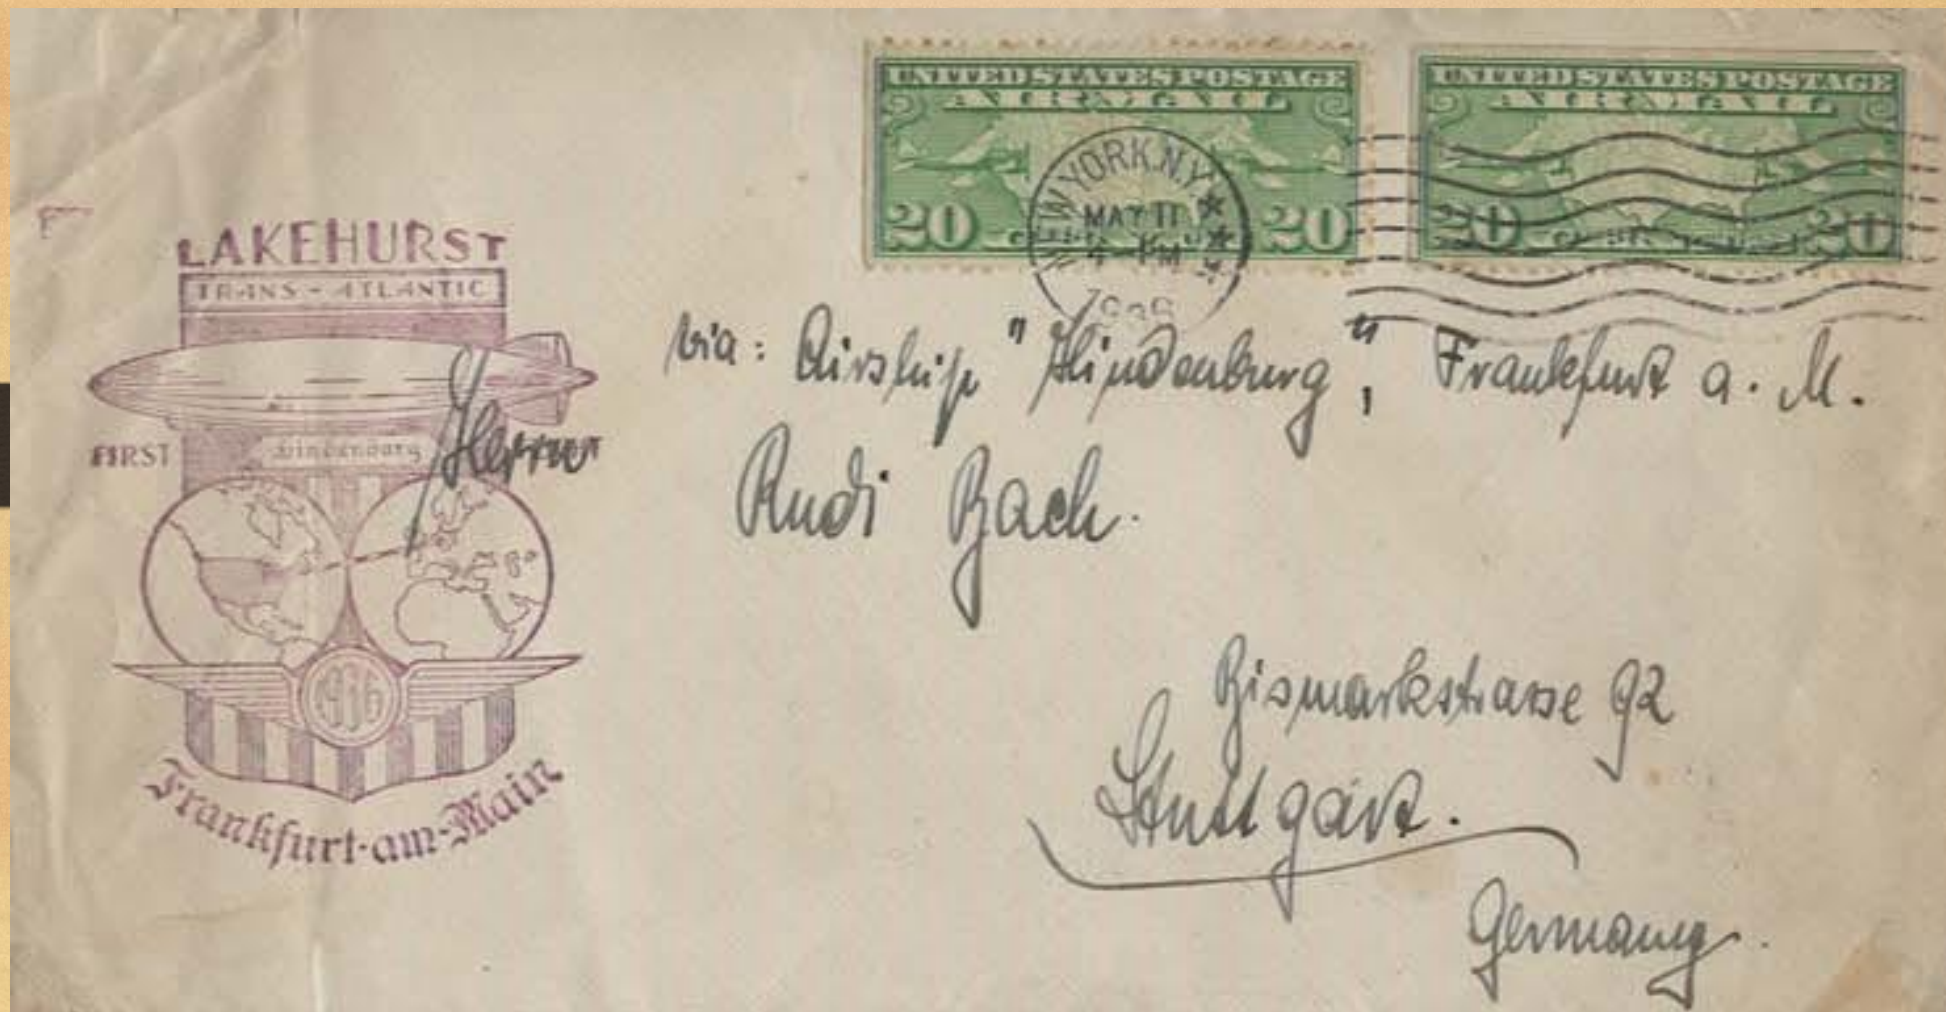 UNITED STATES POSTAGE
AIR MAIL
20 20
UNITED STATES POSTAGE
AIR MAIL
20 20
NEW YORK, N.Y.
MAY 11
4 - PM
1936
LAKEHURST
TRANS - ATLANTIC
FIRST
Hindenburg
1936
Frankfurt-am-Main
via: Airship "Hindenburg", Frankfurt a. M.
Herrn
Rudi Bach.
Bismarkstrasse 92
Stuttgart.
Germany.